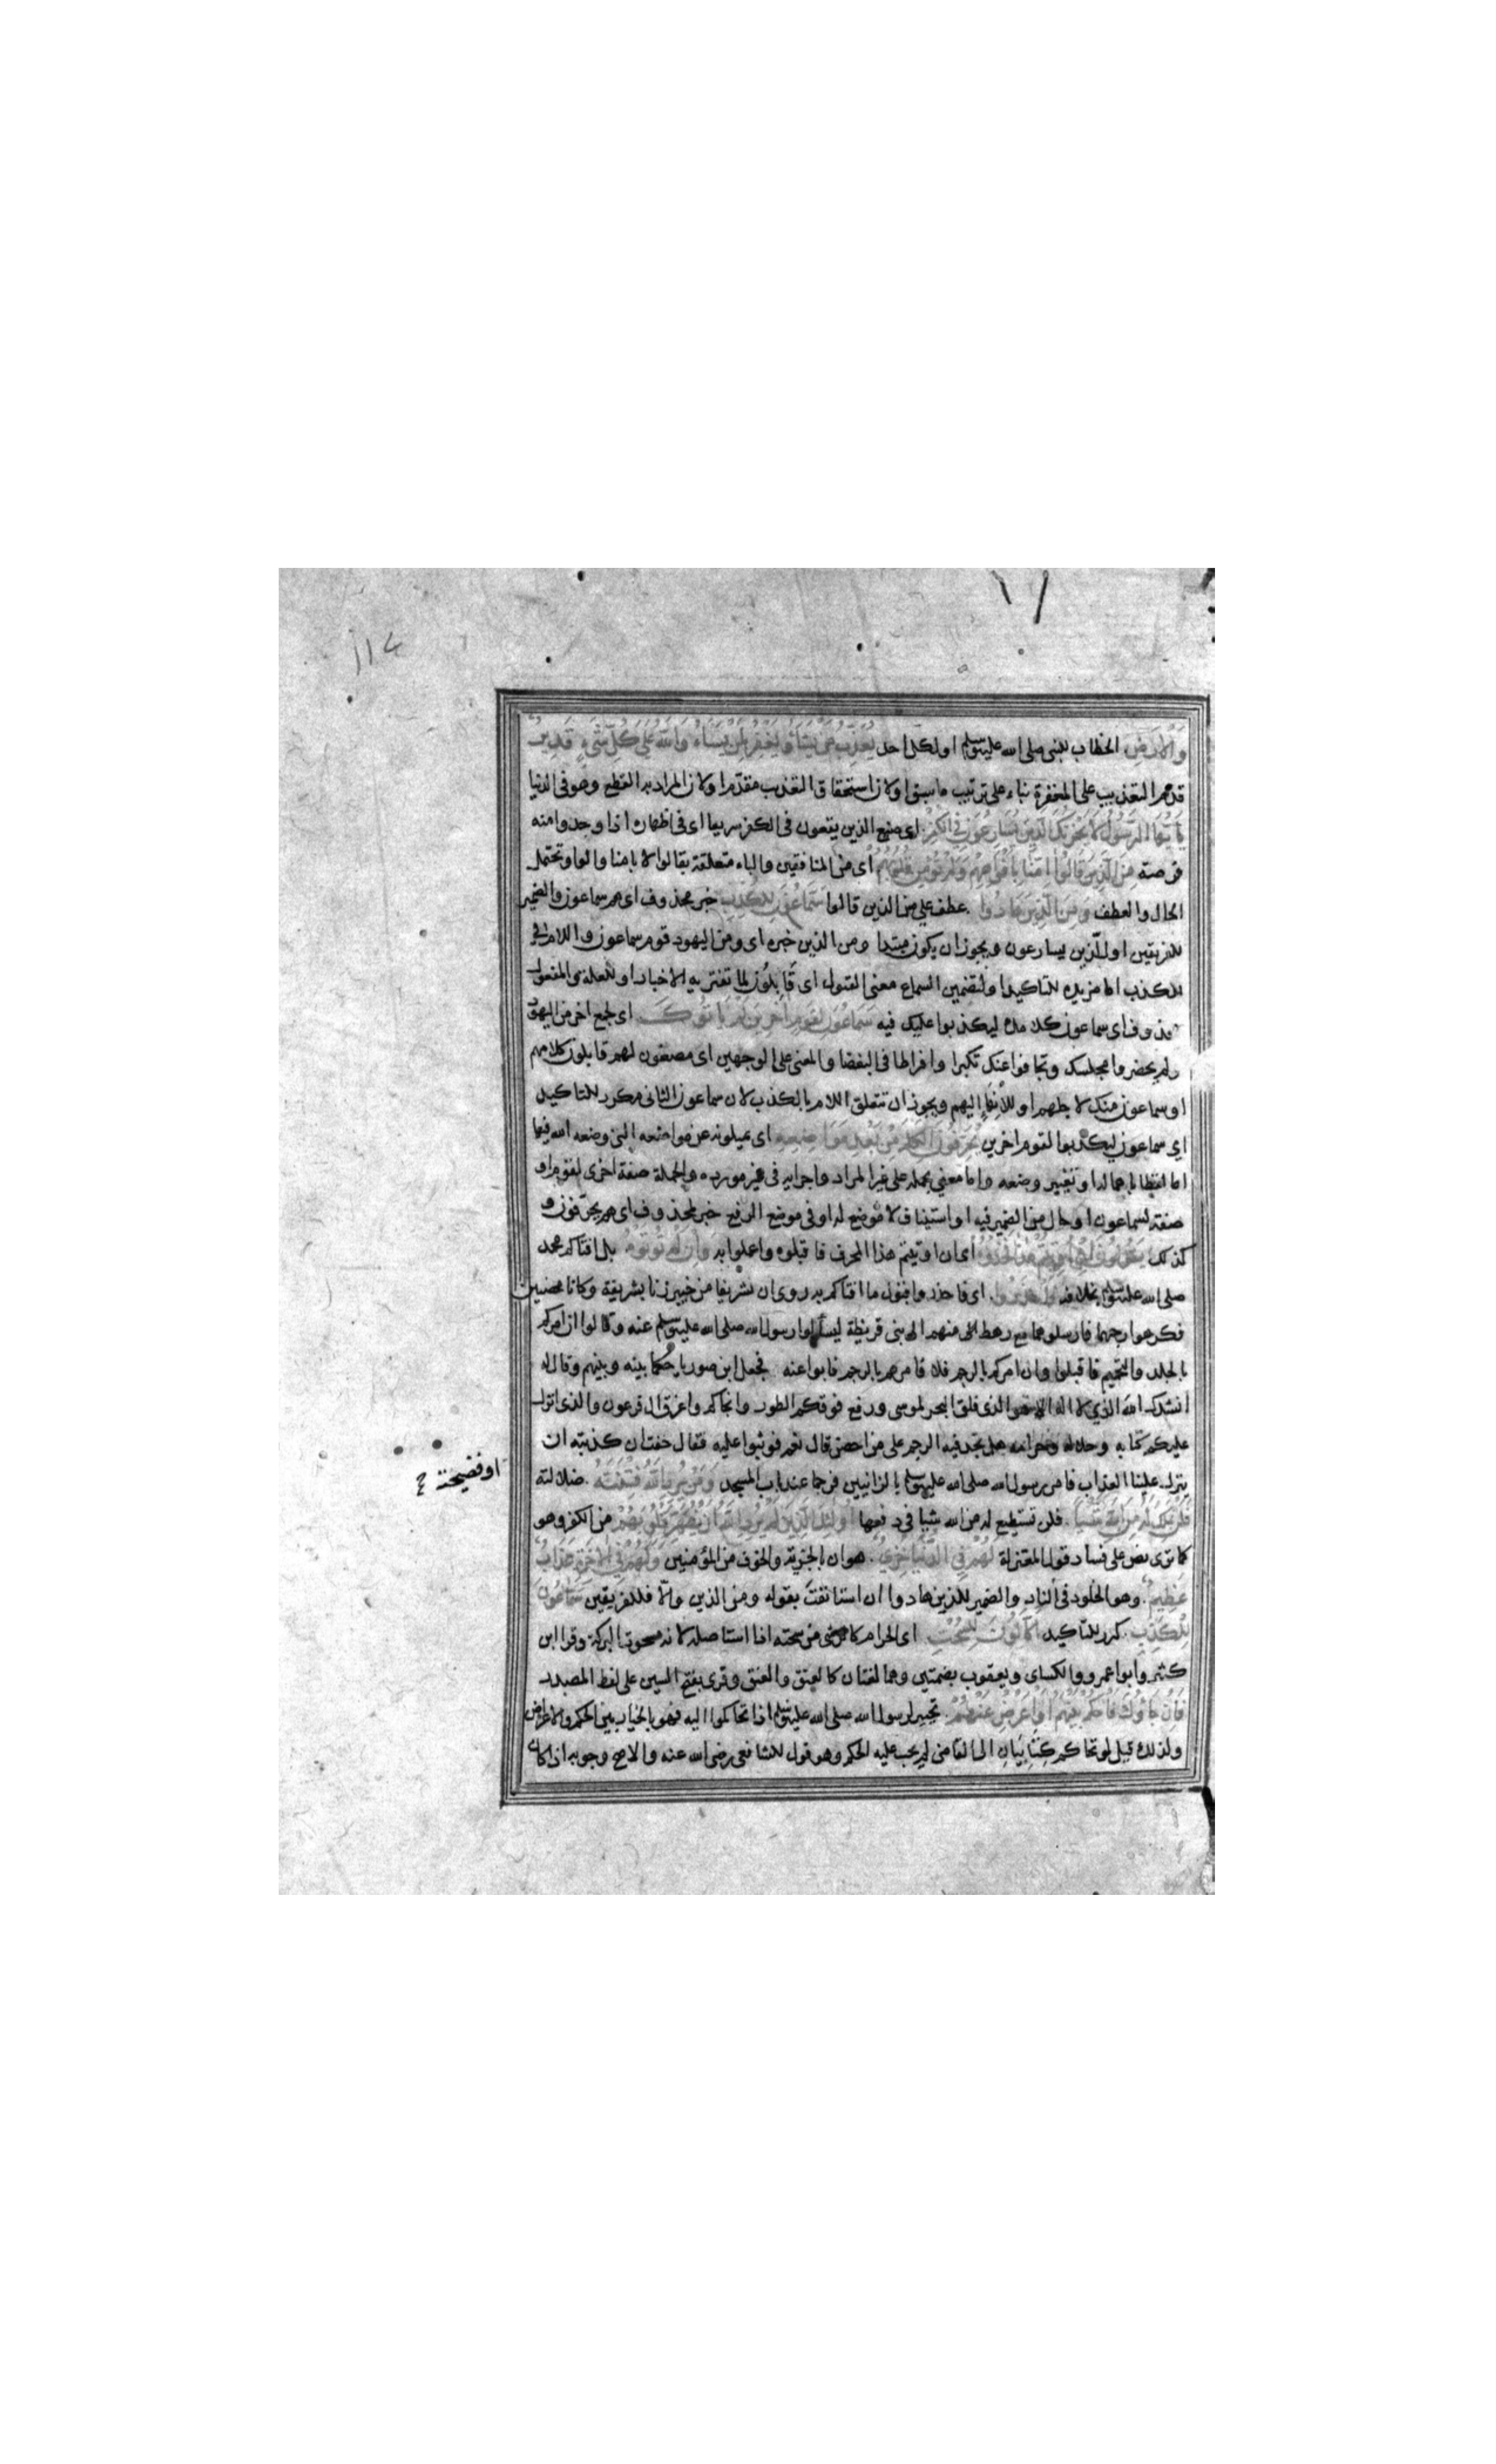 ١١٤
والارض الخطاب للنبي صلى الله عليه وسلم او لكل احد يُعَذِّبُ مَنْ يَشَاءُ وَيَغْفِرُ لِمَنْ يَشَاءُ وَاللَّهُ عَلَى كُلِّ شَيْءٍ قَدِيرٌ
قدم التعذيب على المغفرة بناء على ترتيب ما سبق او لان استحقاق التعذيب مقدم او لان المراد به القطع وهو فى الدنيا
يَا أَيُّهَا الرَّسُولُ لَا يَحْزُنْكَ الَّذِينَ يُسَارِعُونَ فِي الْكُفْرِ اى صنيع الذين يقعون فى الكفر سريعا اى فى اظهاره اذا وجدوا منه
فرصة مِنَ الَّذِينَ قَالُوا آمَنَّا بِأَفْوَاهِهِمْ وَلَمْ تُؤْمِنْ قُلُوبُهُمْ اى من المنافقين والباء متعلقة بقالوا لا بامنا والواو تحتمل
الحال والعطف وَمِنَ الَّذِينَ هَادُوا عطف على من الذين قالوا سَمَّاعُونَ لِلْكَذِبِ خبر محذوف اى هم سماعون والضمير
للفريقين او للّذين يسارعون ويجوز ان يكون مبتدا ومن الذين خبره اى ومن اليهود قوم سماعون واللام فى
للكذب اما مزيده للتاكيد او لتضمين السماع معنى القبول اى قَابِلُون لما تفتريه الاخبار او للعلة والمفعول
محذوف اى سماعون كلامك ليكذبوا عليك فيه سَمَّاعُونَ لِقَوْمٍ آخَرِينَ لَمْ يَأْتُوكَ اى لجمع اخر من اليهود
ولم يحضروا مجلسك وتجافوا عنك تكبرا وافراطا فى البغضا والمعنى على الوجهين اى مصغون لهم قابلون كلامهم
او سماعون منك لاجلهم او للانهاء اليهم ويجوز ان تتعلق اللام بالكذب لان سماعون الثانى مكرر للتاكيد
اى سماعون ليكذبوا لقوم اخرين يُحَرِّفُونَ الْكَلِمَ مِنْ بَعْدِ مَوَاضِعِهِ اى يميلونه عن مواضعه التى وضعه الله فيها
اما لفظا باهماله او تغيير وضعه واما معنى بحمله على غير المراد واجرايه فى غير مورده والجملة صفة اخرى لقوم او
صفة لسماعون او حال من الضمير فيه او استيناف لا موضع له او فى موضع الرفع خبر لمحذوف اى هم يحرفون و
كذلك يَقُولُونَ إِنْ أُوتِيتُمْ هَذَا فَخُذُوهُ اى ان اوتيتم هذا المحرف فاقبلوه واعملوا به وَإِنْ لَمْ تُؤْتَوْهُ بل افتاكم محمد
صلى الله عليه وسلم بخلافه فَاحْذَرُوا اى فاحذروا قبول ما افتاكم به روى ان شريفا من خيبر زنا بشريفة وكانا محصنين
فكرهوا رجمهما فارسلوهما مع رهط منهم الى بنى قريظة ليسألوا رسول الله صلى الله عليه وسلم عنه وقالوا ان امركم
بالجلد والتحميم فاقبلوا وان امركم بالرجم فلا فامرهم بالرجم فابوا عنه فجعل ابن صوريا حكما بينه وبينهم وقال له
انشدك الله الذي لا اله الا هو الذى فلق البحر لموسى ورفع فوقكم الطور وانجاكم واغرق ال فرعون والذى انزل
عليكم كتابه وحلاله وحرامه هل تجد فيه الرجم على من احصن قال نعم فوثبوا عليه فقال خفت ان كذبته ان
ينزل علينا العذاب فامر رسول الله صلى الله عليه وسلم بالزانيين فرجما عند باب المسجد وَمَنْ يُرِدِ اللَّهُ فِتْنَتَهُ ضلالته
او فضيحته
فَلَنْ تَمْلِكَ لَهُ مِنَ اللَّهِ شَيْئًا فلن تستطيع له من الله شيا فى دفعها أُولَئِكَ الَّذِينَ لَمْ يُرِدِ اللَّهُ أَنْ يُطَهِّرَ قُلُوبَهُمْ من الكفر وهو
كما ترى نص على فساد قول المعتزلة لَهُمْ فِي الدُّنْيَا خِزْيٌ هوان بالجزية والخوف من المؤمنين وَلَهُمْ فِي الْآخِرَةِ عَذَابٌ
عَظِيمٌ وهو الخلود فى النار والضمير للذين هادوا ان استانفت بقوله ومن الذين والّا فللفريقين سَمَّاعُونَ
لِلْكَذِبِ كرر للتاكيد أَكَّالُونَ لِلسُّحْتِ اى الحرام كالرشى من سحته اذا استاصله لانه مسحوت البركة وقرا ابن
كثير وابو عمرو والكساى ويعقوب بضمتين وهما لغتان كالعنق والعنق وقرى بفتح السين على لفظ المصدر
فَإِنْ جَاءُوكَ فَاحْكُمْ بَيْنَهُمْ أَوْ أَعْرِضْ عَنْهُمْ تخيير لرسول الله صلى الله عليه وسلم اذا تحاكموا اليه فهو بالخيار بين الحكم والاعراض
ولذلك قيل لو تحاكم كتابيان الى القاضى لم يجب عليه الحكم وهو قول للشافعى رضى الله عنه والاصح وجوبه اذا كان